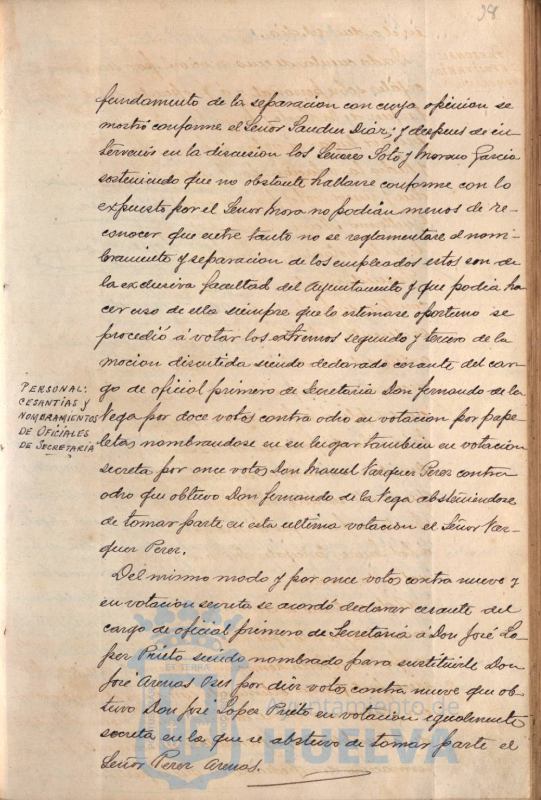 98
fundamento de la separacion con cuya opinion se
mostró conforme el Señor Sandin Diaz, y despues de in
tervenir en la discusion los Señores Soto y Moreno Garcia
sosteniendo que no obstante hallarse conforme con lo
expuesto por el Señor Mora no podian menos de re-
conocer que entre tanto no se reglamentase el nom-
bramiento y separacion de los empleados estos son de
la exclusiva facultad del Ayuntamiento y que podia ha
cer uso de ella siempre que lo estimase oportuno se
procedió á votar los extremos segundo y tercero de la
mocion discutida siendo declarado cesante del car-
go de oficial primero de Secretaria Don Fernando de la
Vega por doce votos contra ocho en votacion por pape
letas nombrandose en su lugar tambien en votacion
secreta por once votos Don Manuel Vazquez Perez contra
ocho que obtuvo Don Fernando de la Vega absteniendose
de tomar parte en esta ultima votacion el Señor Vaz-
quez Perez.
PERSONAL:
CESANTIAS Y
NOMBRAMIENTOS
DE OFICIALES
DE SECRETARIA
Del mismo modo y por once votos contra nueve y
en votacion secreta se acordó declarar cesante del
cargo de oficial primero de Secretaria á Don José Lo-
pez Prieto siendo nombrado para sustituirle Don
José Arenas por diez votos contra nueve que ob-
tuvo Don José Lopez Prieto en votacion igualmente
secreta en la que se abstuvo de tomar parte el
Señor Perez Arenas.
Ayuntamiento de
HUELVA